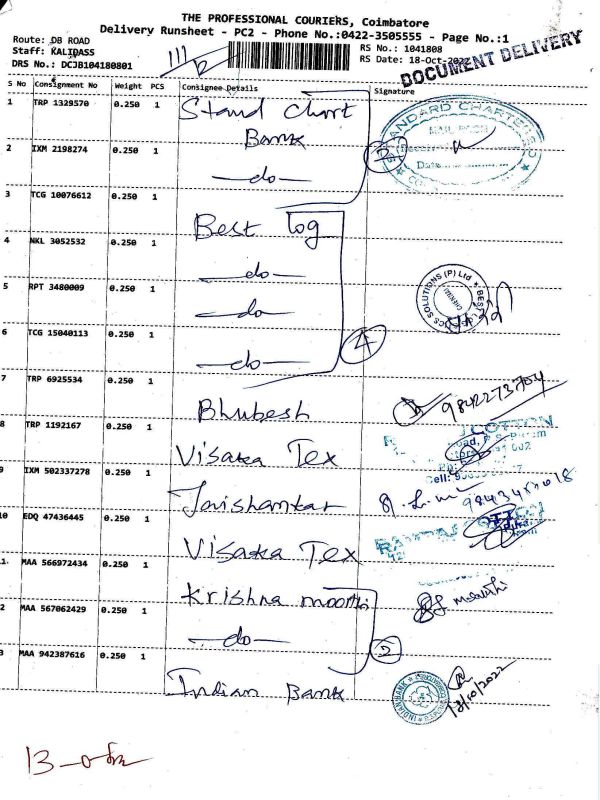 THE PROFESSIONAL COURIERS, Coimbatore
Delivery Runsheet - PC2 - Phone No.:0422-3505555 - Page No.:1
Route: DB ROAD
Staff: KALIDASS
DRS No.: DCJB104180801
RS No.: 1041808
RS Date: 18-Oct-2022
DOCUMENT DELIVERY
S No Consignment No Weight PCS Consignee Details Signature
1 TRP 1329570 0.250 1 Stand chart Bank
2 IXM 2198274 0.250 1 —do—
3 TCG 10076612 0.250 1 Best log
4 NKL 3052532 0.250 1 —do—
5 RPT 3480009 0.250 1 —do—
6 TCG 15040113 0.250 1 —do—
4
7 TRP 6925534 0.250 1 Bhubesh
9842273704
8 TRP 1192167 0.250 1 Visaka Tex
9 IXM 502337278 0.250 1
10 EDQ 47436445 0.250 1 Visaka Tex
11 MAA 566972434 0.250 1 Krishna moorthi
2 MAA 567062429 0.250 1 —do—
3 MAA 942387616 0.250 1 Indian Bank
STANDARD CHARTERED
MAIL ROOM
Date
SOLUTIONS (P) Ltd
COTTON
Cell:
INDIAN BANK
18/10/2022
13